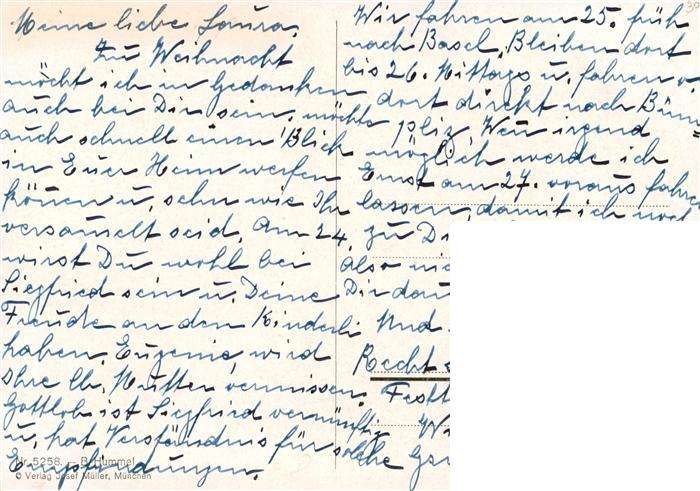 Meine liebe Laura.
Zu Weihnacht
möcht ich in Gedanken
auch bei Dir sein, möchte
auch schnell einen Blick
in Euer Heim werfen
können u. sehn wie Ihr
versamelt seid. Am 24.
wirst Du wohl bei
Siegfried sein u. Deine
Freude an den Kinderli
haben. Eugenie, wird
Ihre lb. Mutter vermissen.
Gottlob ist Siegfried vernünftig
u. hat Verständnis für solche
Empfindungen.
Nr. 5258. — B. Hummel
© Verlag Josef Müller, München
30
Wir fahren am 25. früh
nach Basel. Bleiben dort
bis 26. Mittags u. fahren v
dort direkt nach Büm
pliz. Wen irgend
möglich werde ich
Ernst am 27. voraus fahren
lassen, damit ich noch
zu Di
also nic
Dir dau
Und
Recht
Festt
Wi
Ges